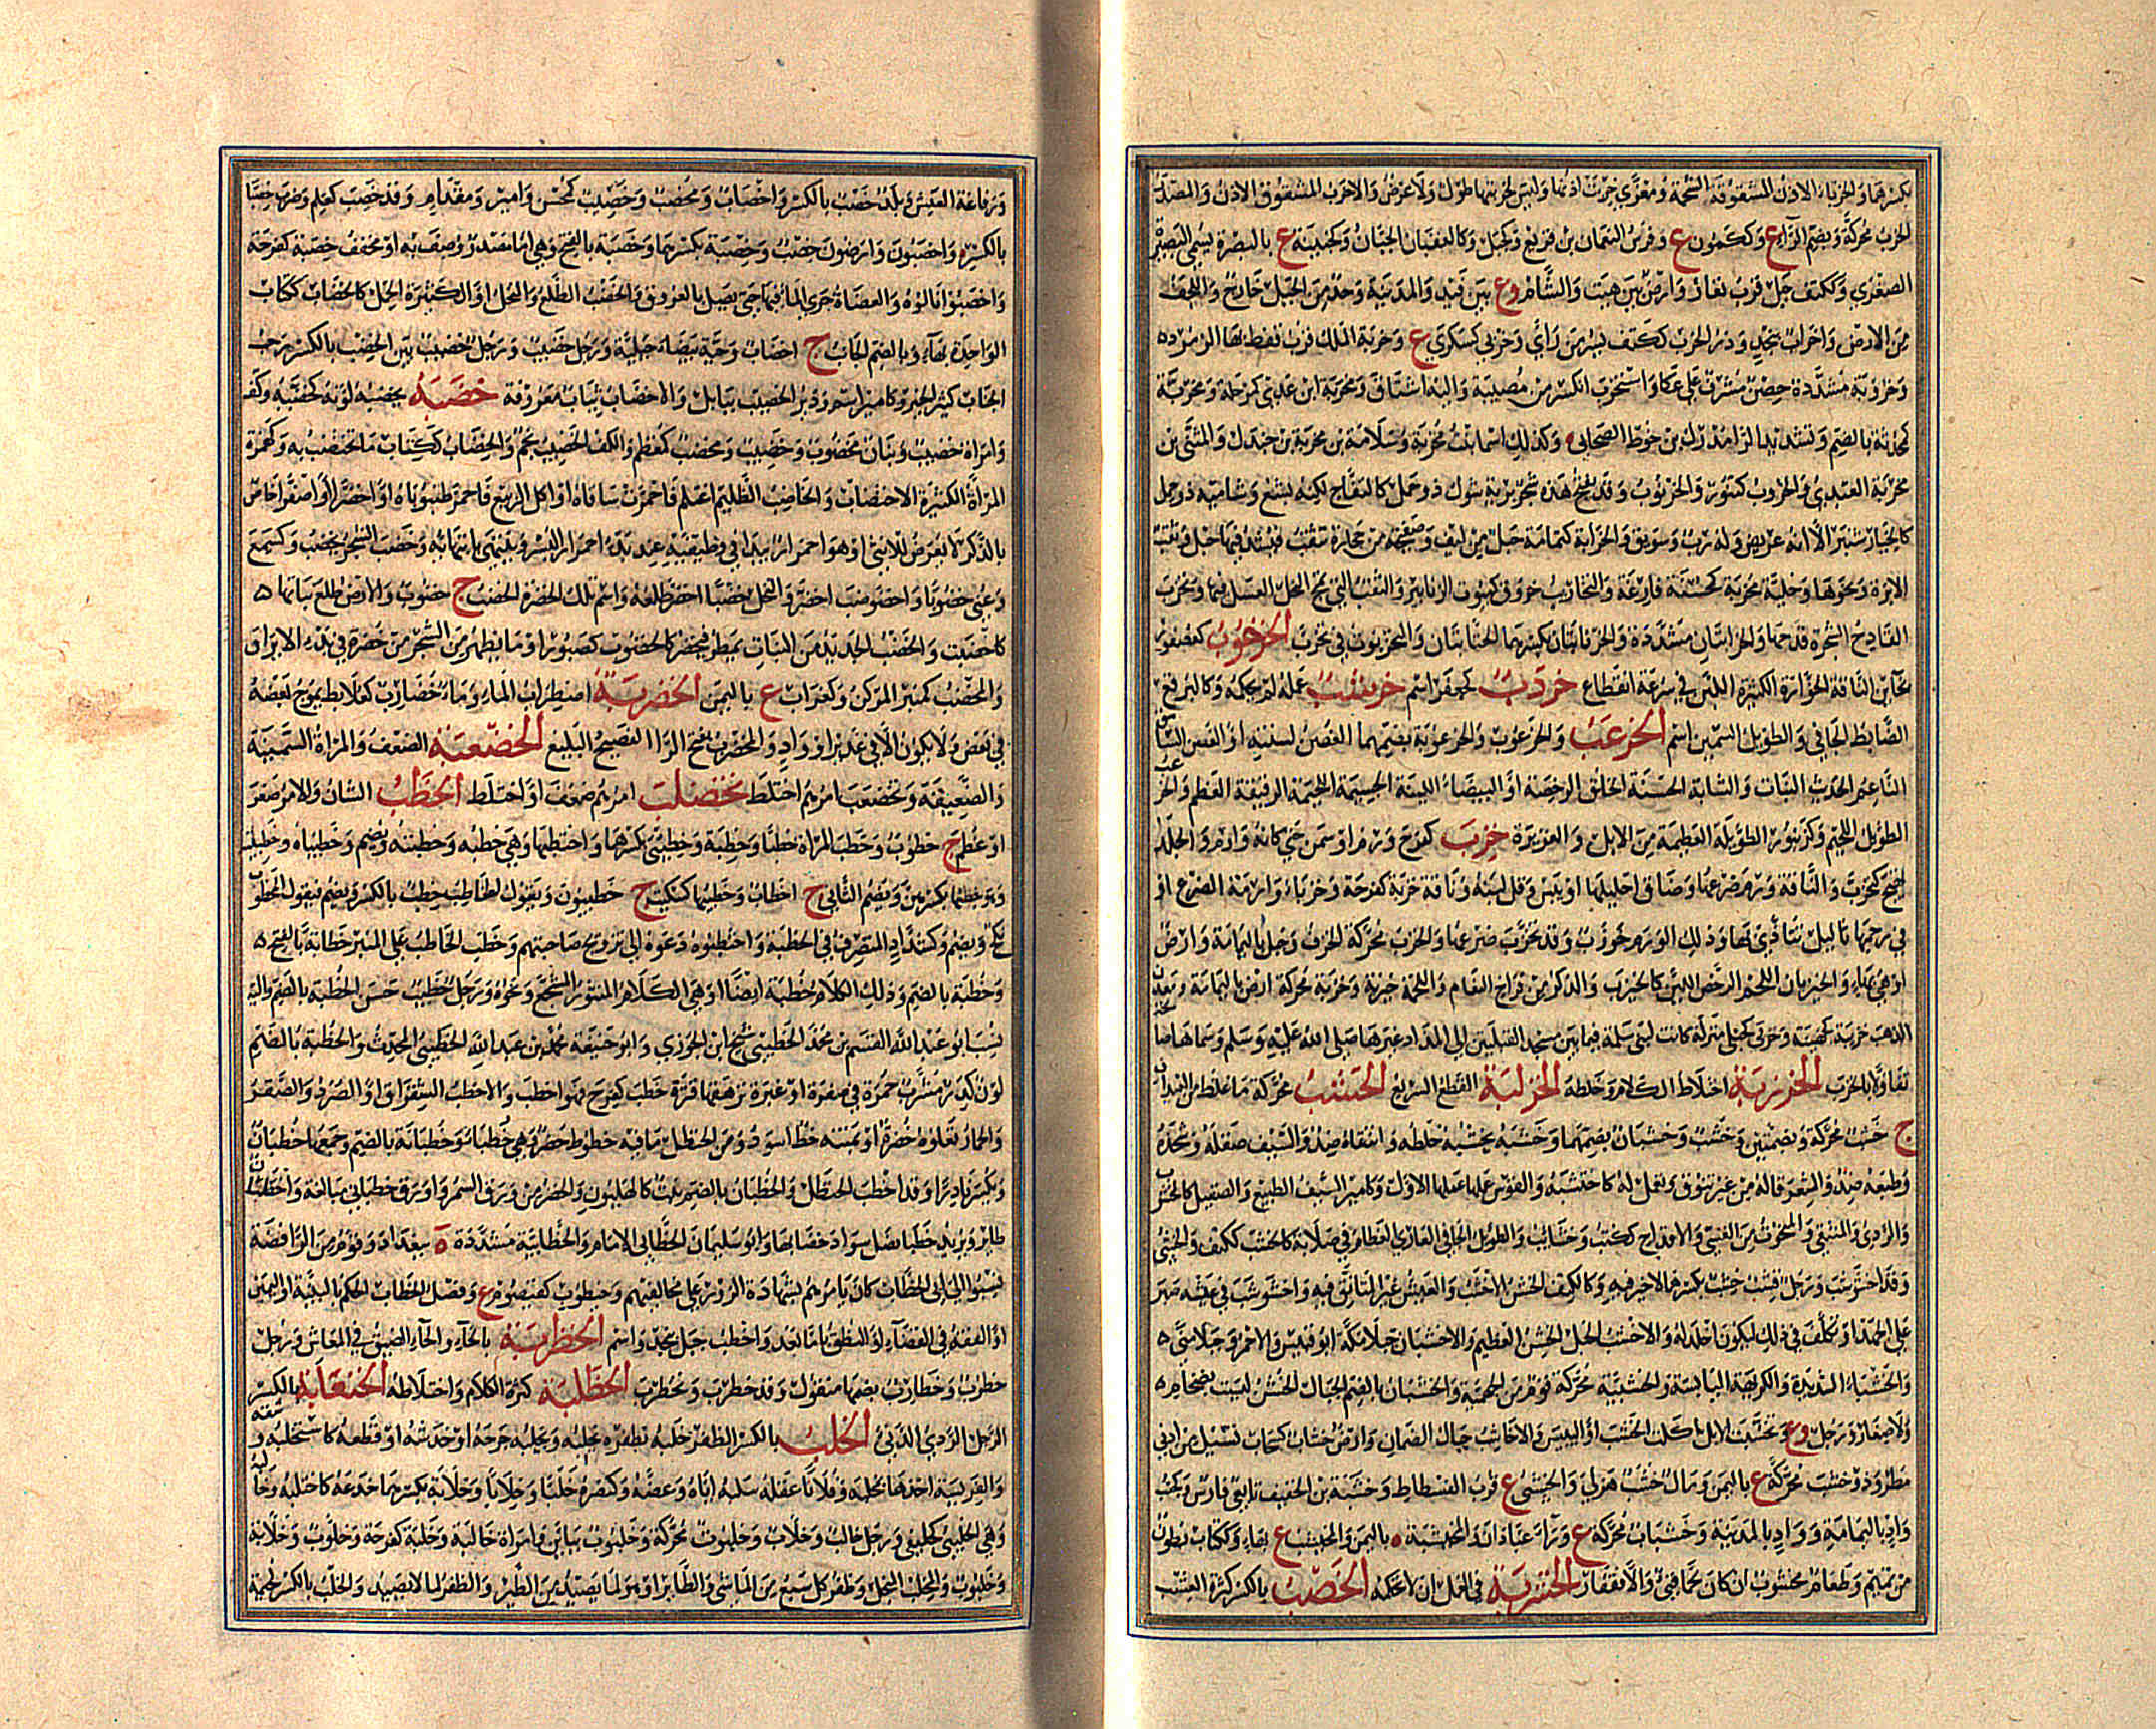 بكسرهما والخرباء الاذن المشقوقة الشحمة ومعزى خربت اذنها وليس لخربتها طول ولا عرض والاخرب المشقوق الاذن والمصدر
الخرب محركة وبضم الراء ع وككمون ع وفرس النعمان بن قريع وكجبل وكالعقبان الجبان وكجهينة ع بالبصرة يسمى البصيرة
الصغرى وككتف جبل قرب تعار وارض بين هيت والشام وع بين فيد والمدينة وحد من الجبل خارج واللجف
من الارض واخراب بنجد ودير الخرب ككتف بسر من رأى وخربى كسكرى ع وخربة الملك قرب قفط بها الزمرد ه
وخروبة مشددة حصن مشرف على عكا واستخرب انكسر من مصيبة واليه اشتاق ومخربة ابن عدي كمرحلة ومخربة
كمحدثة بالضم وتشديد الراء مدرك بن خوط الصحابى وكذلك اسماء بنت مخربة وسلامة بن مخربة بن جندل والمثنى بن
مخربة العبدي والخروب كتنور والخرنوب وقد يفتح هذه شجر برية شوك ذو حمل كالتفاح لكنه بشع وشامية ذو حمل
كالخيار شنبر الا انه عريض وله رب وسويق والخرابة كثمامة حبل من ليف وصفيحة من حجارة تثقب فيشد فيها حبل وثقبة
الابرة ونحوها وخلية مخربة كمحسنة فارغة والنخاريب خروق كبيوت الزنابير والثقب التي تمج النحل العسل فيها ونخرب
القادح الشجرة قدحها والخرابتان مشددة والخرنابتان بكسرهما الخنابتان والتخربوت فى تخرب الخرخوب كعصفور
بخاءين الناقة الخوارة الكثيرة اللبن في سرعة انقطاع خردب كجعفر اسم خرشب عمله لم يحكمه وكالبرقع
الضابط الجافي والطويل السمين اسم الخرعب والخرعوب والخرعوبة بضمهما الغصن لسنته او الغض السامق
الناعم الحديث النبات والشابة الحسنة الخلق الرخصة او البيضاء اللينة الجسيمة اللحيمة الرقيقة العظم والخرعب
الطويل اللحيم وكزنبور الطويلة العظيمة من الابل والغزيرة خزب كفرح ورم او سمن حتى كانه وارم والجلد
تهيج كتخزب والناقة ورم ضرعها وضاق احليلها او يبس وقل لبنه وناقة خزبة كفرحة وخزباء وارمة الضرع او
في رحمها ثآليل تتأذى بها وذلك الورم خوزب وقد تخزب ضرعها والخزب محركة الخزف وجبل باليمامة وارض
او هي بهاء والخيزبان اللحم الرخص اللين كالخيزب والذكر من فراخ النعام واللحمة خيزبة وخزبة محركة ارض باليمامة ومعدن
الذهب خزيبة كجهينة وخزبى كحبلى منزلة كانت لبني سلمة فيما بين مسجد القبلتين الى المذاد غيرها صلى الله عليه وسلم وسماها صالحة
تفاؤلا بالخزب الخزربة اختلاط الكلام وخلطه الخزلبة القطع السريع الخشب محركة ما غلظ من العيدان
ج خشب محركة وبضمتين وخشب وخشبان بضمهما وخشبه يخشبه خلطه وانتقاه ضد والسيف صقله وشحذه
وطبعه ضد والشعر قاله من غير تنوق وتعمل له كاختشبه والقوس عملها عملها الاول وكامير السيف الطبيع والصقيل كالخشب
والردي والمنتقى والمنحوت من القسي والاقداح ككتب وخشائب والطويل الجافي العاري العظام في صلابة كالخشب ككتف والخشبى
وقد اخشوشب ورجل قشب خشب بكسرهما لا خير فيه وكالكتف الخشن الاخشب والعيش غير المتأنق فيه واخشوشب في عيشه صبر
على الجهد او تكلف في ذلك ليكون اجلد له والاخشب الجبل الخشن العظيم والاخشبان جبلا مكة ابو قبيس والاحمر وجبلا منى ه
والخشباء الشديدة والكريهة اليابسة والخشبية محركة قوم من الجهمية والخشبان بالضم الجبال الخشن ليست بضخام ه
ولا صغار ورجل وع وتخشبت الابل اكلت الخشب او اليبيس والاخاشب جبال الصمان وارض خشاب كسحاب تسيل من ادنى
مطر وذو خشب محركة ع باليمن ومال خشب هزلى والخشبى ع قرب الفسطاط وخشبة بن الخفيف تابعي فارس وكجنب
واد باليمامة وواد بالمدينة وخشبات محركة ع وراء عبادان والخشبة ه باليمن والخشيب ع بها وككتاب بطون
من تميم وطعام مخشوب ان كان لحما فنيء والا فقفار الخشربة في العمل ان لا تحكمه الخصب بالكسر كثرة العشب
ورفاغة العيش وبلد خصب بالكسر واخصاب ومخصب وخصيب كمحسن وامير ومقدام وقد خصب كعلم وضرب خصبا
بالكسر واخصبون وارضون خصب وخصبة بكسرهما وخصبة بالفتح وهي اما مصدر وصف به او مخفف خصبة كفرحة
واخصبوا نالوه والعضاة جرى الماء فيها حتى يصل بالعروق والخصب الطلع والنخل او الكثيرة الحمل كالخصاب ككتاب
الواحدة بهاء وبالضم الجانب ج اخصاب وحية بيضاء جبلية ورجل خصيب ورجل خصيب بين الخصب بالكسر رحب
الجناب كثير الخير وكامير اسم ودير الخصيب ببابل والاخصاب ثياب معروفة خضبه يخضبه لونه كخضبه وكف
وامرأة خضيب وبنان مخضوب وخضيب ومخضب كمعظم والكف الخضيب نجم والخضاب ككتاب ما يختضب به وكهمزة
المرأة الكثيرة الاختضاب والخاضب الظليم اغتلم فاحمرت ساقاه او اكل الربيع فاحمر ظنبوباه او اخضرا او اصفرا خاص
بالذكر لا يعرض للانثى او هو احمرار يبدأ في وظيفيه عند بدء احمرار البسر وينتهي بانتهائه وخضب الشجر يخضب وكسمع
وعنى خضوبا واخضوضب اخضر والنخل خضبا اخضر طلعه واسم تلك الخضرة الخضب ج خضوب والارض طلع نباتها ه
كاخضبت والخضب الجديد من النبات يمطر فيخضر كالخضوب كصبور او ما يظهر من الشجر من خضرة في بدء الايراق
والمخضب كمنبر المركن وكغراب ع باليمن الخضربة اضطراب الماء وماء خضارب كعلابط يموج بعضه
في بعض ولا يكون الا في غدير او واد والمخضرب بفتح الراء الفصيح البليغ الخضعبة الضعف والمرأة السمينة
والضعيفة وتخضعب امرهم اختلط تخضلب امرهم ضعف او اختلط الخطب الشان والامر صغر
او عظم ج خطوب وخطب المرأة خطبا وخطبة وخطيبى بكسرهما واختطبها وهي خطبه وخطبته ويضم وخطيباه وخطيبته
وهو خطبها بكسرهن ويضم الثاني ج اخطاب وخطيبها كسكيت ج خطيبون ويقول الخاطب خطب بالكسر ويضم فيقول المخطوب
نكح ويضم وكشداد المتصرف في الخطبة واختطبوه دعوه الى تزويج صاحبتهم وخطب الخاطب على المنبر خطابة بالفتح ه
وخطبة بالضم وذلك الكلام خطبة ايضا او هي الكلام المنثور المسجع ونحوه ورجل خطيب حسن الخطبة بالضم واليه
نسب ابو عبد الله القسم بن محمد الخطيبي شيخ ابن الجوزي وابو حنيفة محمد بن عبد الله الخطيبي المحدث والخطبة بالضم
لون كدر مشرب حمرة في صفرة او غبرة ترهقها خضرة خطب كفرح فهو اخطب والاخطب الشقراق او الصرد والصقر
والحمار تعلوه خضرة او بمتنه خط اسود ومن الحنظل ما فيه خطوط خضر وهي خطباء وخطبانة بالضم وجمعها خطبان
ويكسر نادرا وقد اخطب الحنظل والخطبان بالضم نبت كالهليون والخضر من ورق السمر واورق خطباني مبالغة واخطبان
طائر ويد خطباء نصل سواد خضابها وابو سليمان الخطابي الامام والخطابية مشددة ه ببغداد وقوم من الرافضة
نسبوا الى ابى الخطاب كان يامرهم بشهادة الزور على مخالفيهم وخيطوب كقيصوم ع وفصل الخطاب الحكم بالبينة او اليمين
او الفقه في القضاء او النطق باما بعد واخطب جبل بنجد واسم الخطربة بالخاء والحاء الضيق في المعاش ورجل
خطرب وخطارب بضمهما متقول وقد خطرب وتخطرب الخطلبة كثرة الكلام واختلاطه الخنعابة بالكسر
الرجل الردي الدني الخلب بالكسر الظفر خلبه بظفره يخلبه ويخلبه جرحه او خدشه او قطعه كاستخلبه وشقه
والفريسة اخذها بمخلبه وفلانا عقله سلبه اياه وعضه وكنصره خلبا وخلابا وخلابة بكسرهما خدعه كاختلبه وخالبه
وهي الخليبى كخليفى ورجل خالب وخلاب وخلبوت محركة وخلبوب بباءين وامرأة خالبة وخلبة كفرحة وخلوب وخلابة
وخلبوت والمخلب المنجل وظفر كل سبع من الماشي والطائر او هو لما يصيد من الطير والظفر لما لا يصيد والخلب بالكسر لحيمة